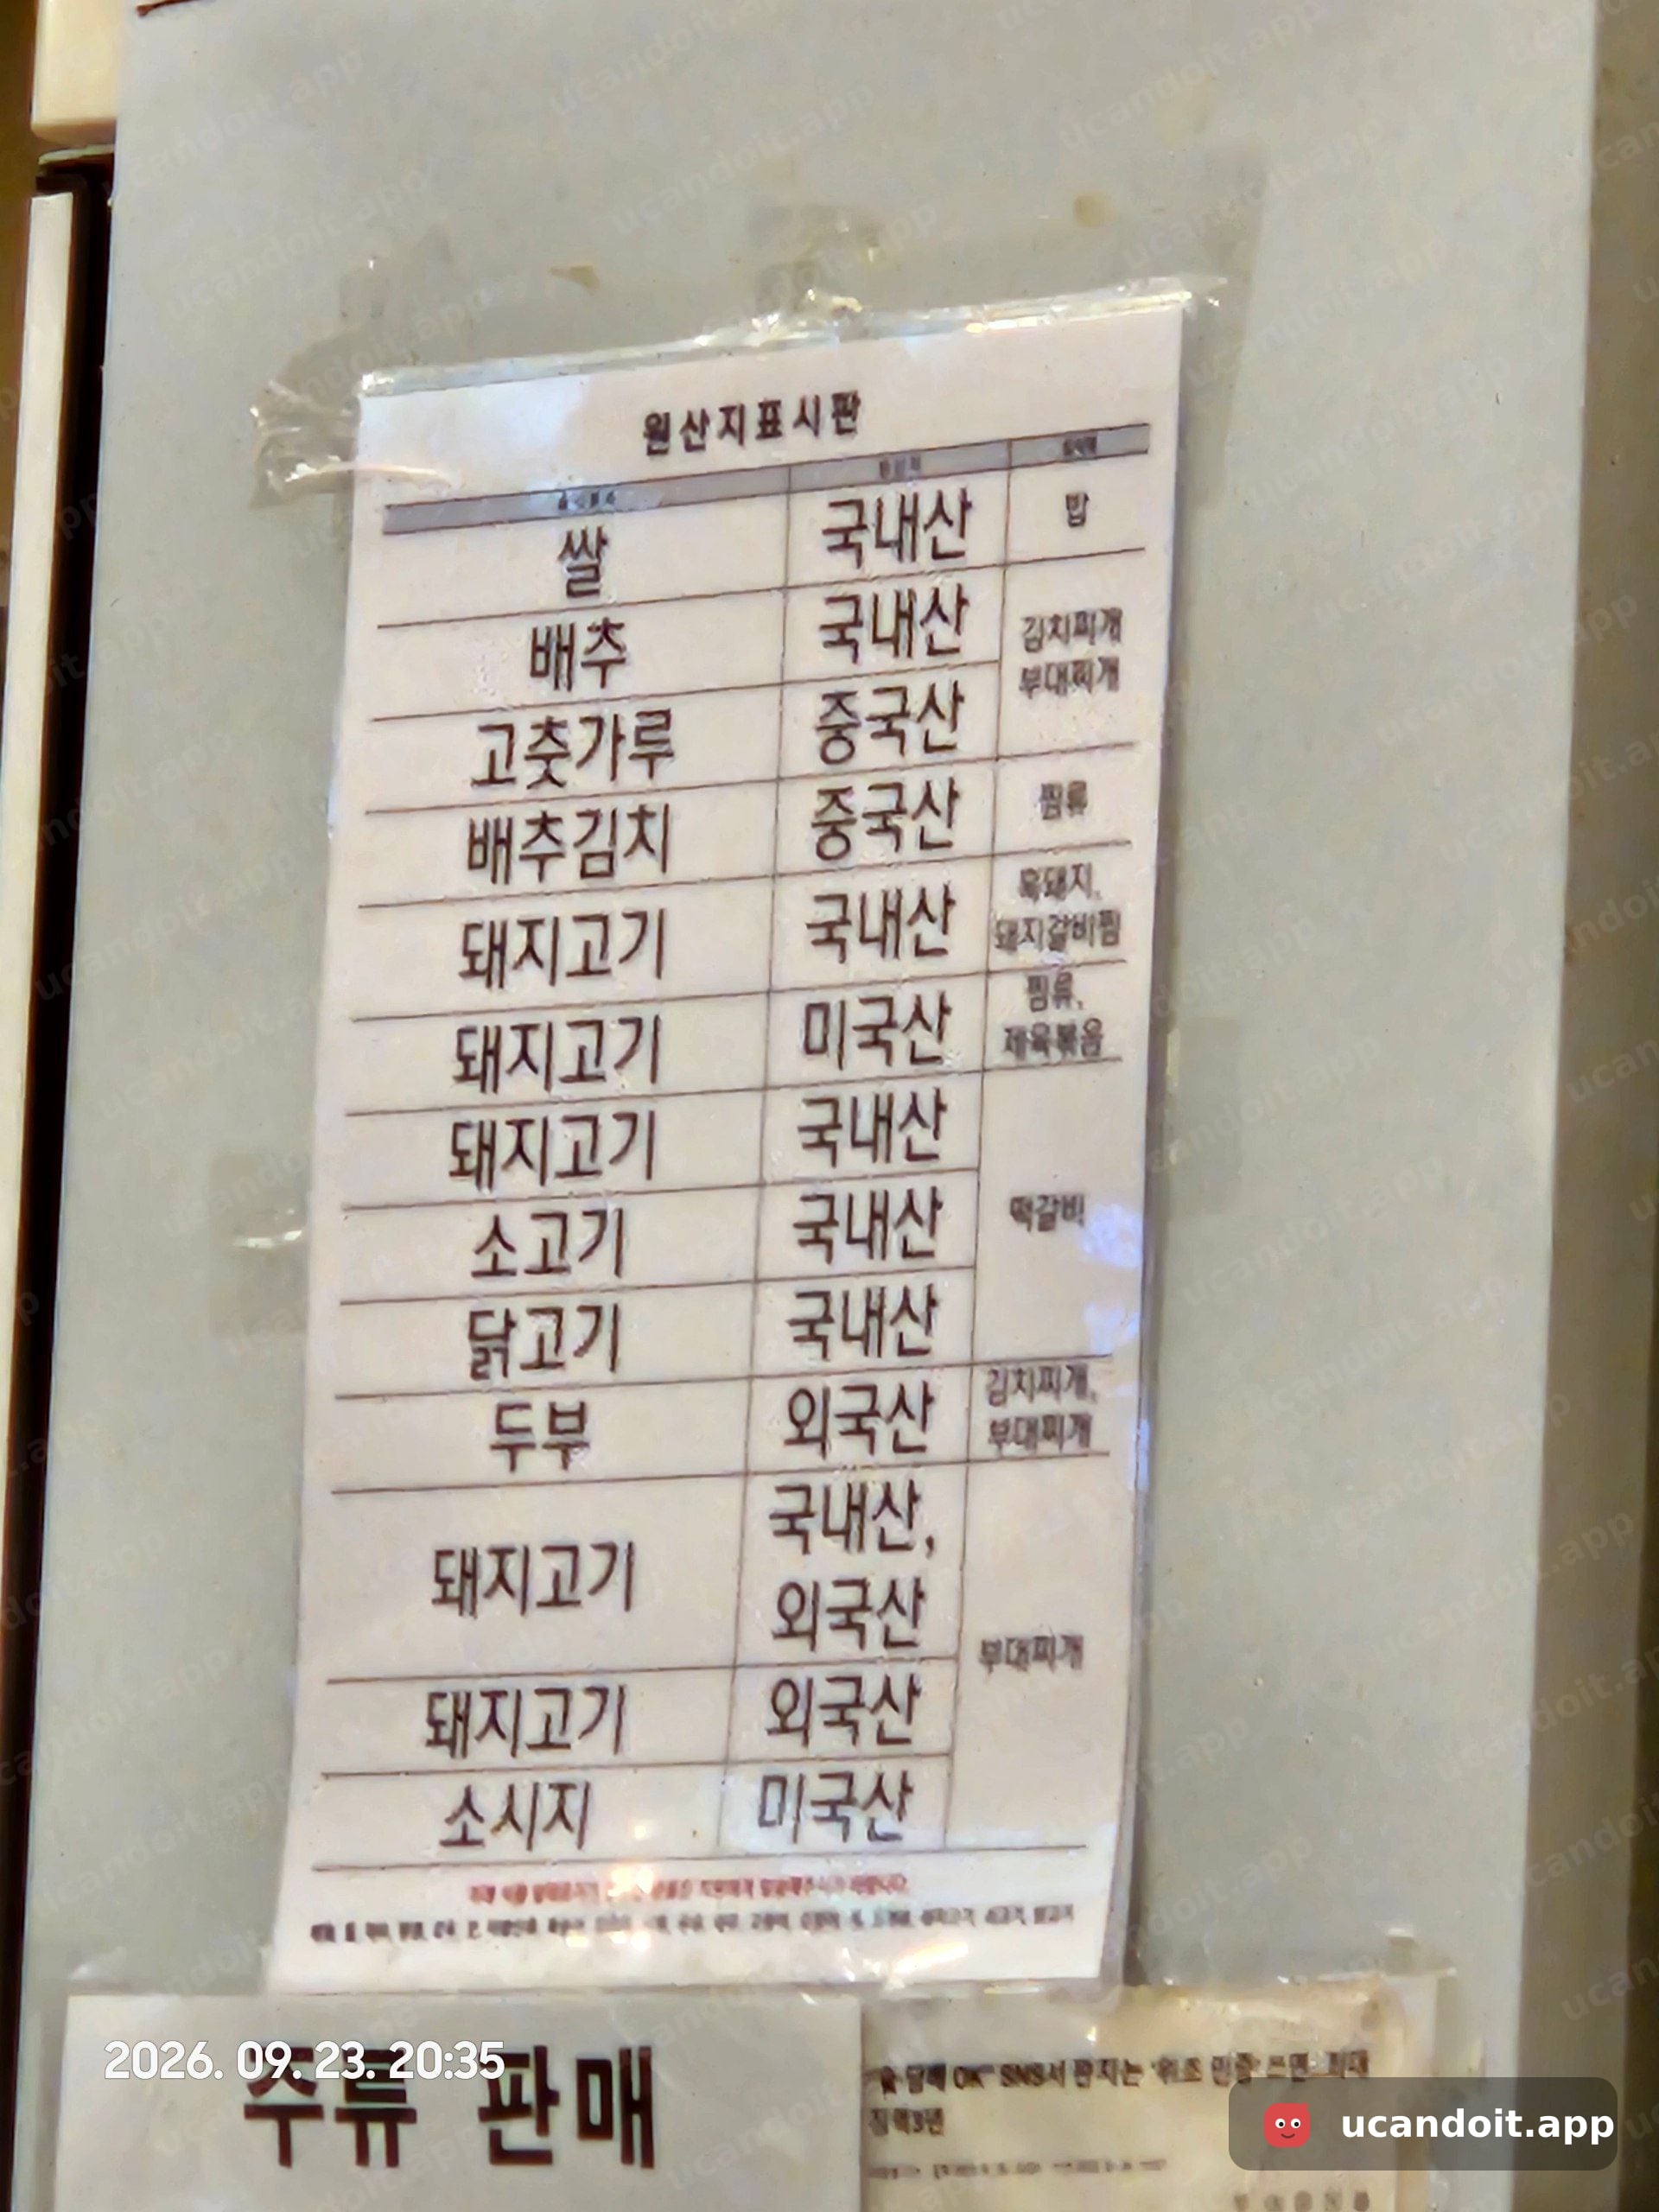 원산지표시판
쌀 국내산 밥
배추 국내산 김치찌개
부대찌개
고춧가루 중국산
배추김치 중국산 찜류
돼지고기 국내산 목돼지,
돼지갈비찜
돼지고기 미국산 찜류,
제육볶음
돼지고기 국내산
소고기 국내산 떡갈비
닭고기 국내산
두부 외국산 김치찌개,
부대찌개
돼지고기 국내산,
외국산
부대찌개
돼지고기 외국산
소시지 미국산
2026. 09. 23. 20:35
주류 판매
OK" SNS서 '위조 민증' 쓰면… 최대
징역3년
ucandoit.app